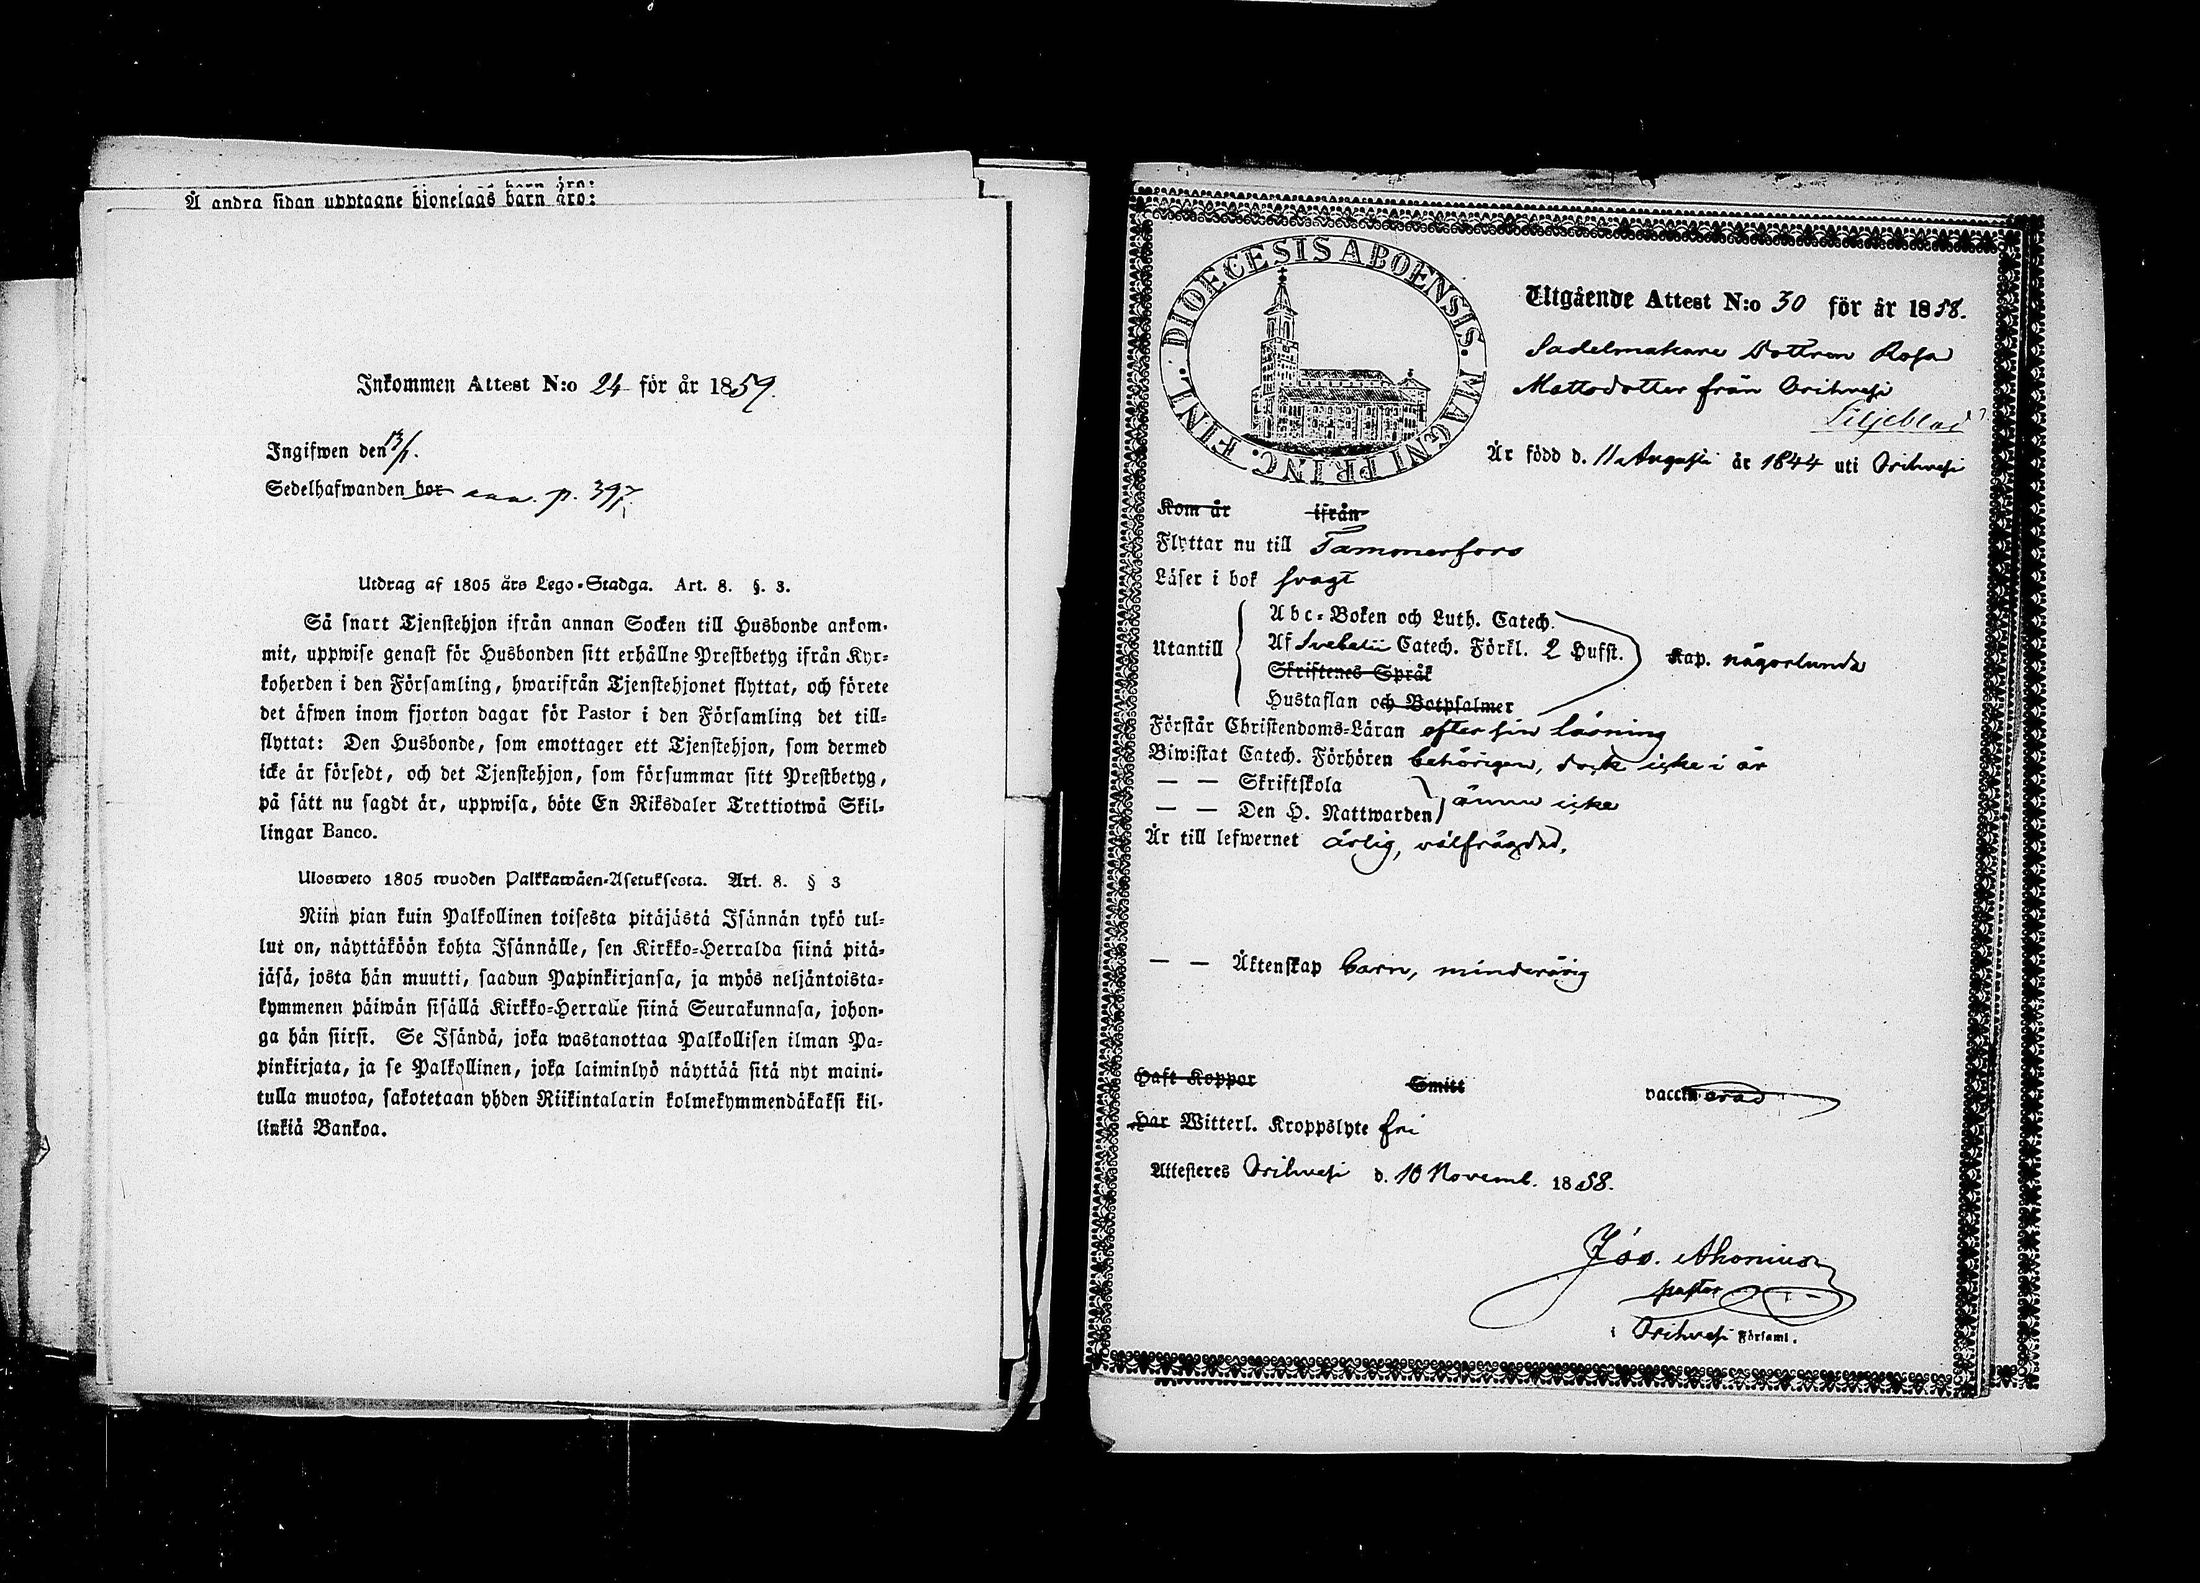 Å andra sidan upptagne hjonelags barn äro:
Inkommen Attest N:o 24 för år 1859.
Ingifwen den 13/1.
Sedelhafwanden bor ann. p. 397
Utdrag af 1805 års Lego-Stadga. Art. 8. §. 3.
Så snart Tjenstehjon ifrån annan Socken till Husbonde ankom-
mit, uppwise genast för Husbonden sitt erhållne Prestbetyg ifrån Kyr-
koherden i den Församling, hwarifrån Tjenstehjonet flyttat, och förete
det äfwen inom fjorton dagar för Pastor i den Församling det till-
flyttat: Den Husbonde, som emottager ett Tjenstehjon, som dermed
icke är försedt, och det Tjenstehjon, som försummar sitt Prestbetyg,
på sätt nu sagdt är, uppwisa, böte En Riksdaler Trettiotwå Skil-
lingar Banco.
Ulosweto 1805 wuoden Palkkawäen-Asetuksesta. Art. 8. § 3
Niin pian kuin Palkollinen toisesta pitäjästä Isännän tykö tul-
lut on, näyttäköön kohta Isännälle, sen Kirkko-Herralda siinä pitä-
jäsä, josta hän muutti, saadun Papinkirjansa, ja myös neljäntoista-
kymmenen päiwän sisällä Kirkko-Herralle siinä Seurakunnasa, johon-
ga hän siirsi. Se Isändä, joka wastanottaa Palkollisen ilman Pa-
pinkirjata, ja se Palkollinen, joka laiminlyö näyttää sitä nyt maini-
tulla muotoa, sakotetaan yhden Riikintalarin kolmekymmendäkaksi kil-
linkiä Bankoa.
DIOECESIS ABOENSIS. MAGNI PRINC. FINL.
Utgående Attest N:o 30 för år 1858.
Sadelmakare Dottren Rosa
Mattsdotter från Orihvesi
Liljeblad
Är född d. 11 Augusti år 1844 uti Orihvesi
Kom år ifrån
Flyttar nu till Tammerfors
Läser i bok svagt
Utantill
Abc-Boken och Luth. Catech.
Af Svebelii Catech. Förkl. 2 Hufst. Kap. någorlunda
Skriftenes Språk
Hustaflan och Botpsalmer
Förstår Christendoms-Läran efter sin läsning
Biwistat Catech. Förhören behörigen, dock icke i år
— — Skriftskola
— — Den H. Nattwarden ännu icke
Är till lefwernet ärlig, välfrägdad.
— — Äktenskap barn, minderårig
Haft Koppor Smitt vaccinerad
Har Witterl. Kroppslyte fri
Attesteres Orihvesi d. 10 Novemb. 1858.
Jos. Ahonius
pastor
i Orihvesi Församl.